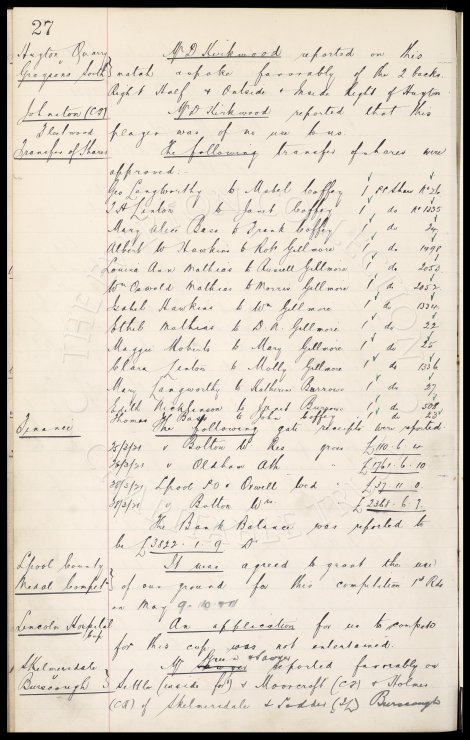 27
Huyton Quarry
v
Graysons South
Mr D Kirkwood reported on this
match & spoke favorably of the 2 backs.
Right Half & Outside & Inside Right of Huyton.
Johnston (C.F)
Fleetwood
Mr D Kirkwood reported that this
player was of no use to us.
Transfer of Shares
The following transfer of shares were
approved:-
Geo Langworthy to Mabel Coffey 1 Share No 26
J H Linton to Janet Coffey 1 do No 1335
Mary Alice Base to Frank Coffey 1 do
Albert W Hawkins to Robt Gillmore 1 do 1498
Louisa Ann Mathias to Russell Gillmore 1 do 2053
Wm Oswold Mathias to Morris Gillmore 1 do 2052
Isabel Hawkins to Wm Gillmore 1 do 1334
Ethel Mathias to D. A. Gillmore 1 do 22
Maggie Roberts to Mary Gillmore 1 do 25
Clara Linton to Molly Gillmore 1 do 1336
Mary Langworthy to Katherine Burrows 1 do 27
Edith Nickinson to Janet Burrows 1 do
Thomas to Coffey 1 do 23
Finance
The following gate receipts were reported.
26/3/21 v Bolton W Res gross £110. 6. 10
26/3/21 v Oldham Ath £1761. 6. 10
28/3/21 Lpool v Orwell Wed £37 11 0
28/3/21 v Bolton Wrs £2368. 6. 3.
The Bank Balance was reported to
be £3822. 1. 9 Dr
Lpool County
Medal Compet
It was agreed to grant the use
of our ground for this competition 1st Rds
on May 9. 10 & 11
Lincoln Hospital
Cup
An application for us to compete
for this cup was not entertained.
Skelmersdale
v
Burscough
Mr Sawyer reported favorably on
Settle (inside for) & Moorcroft (C.F) & Holmes
(C.H) of Skelmersdale & (I.L) Burscough